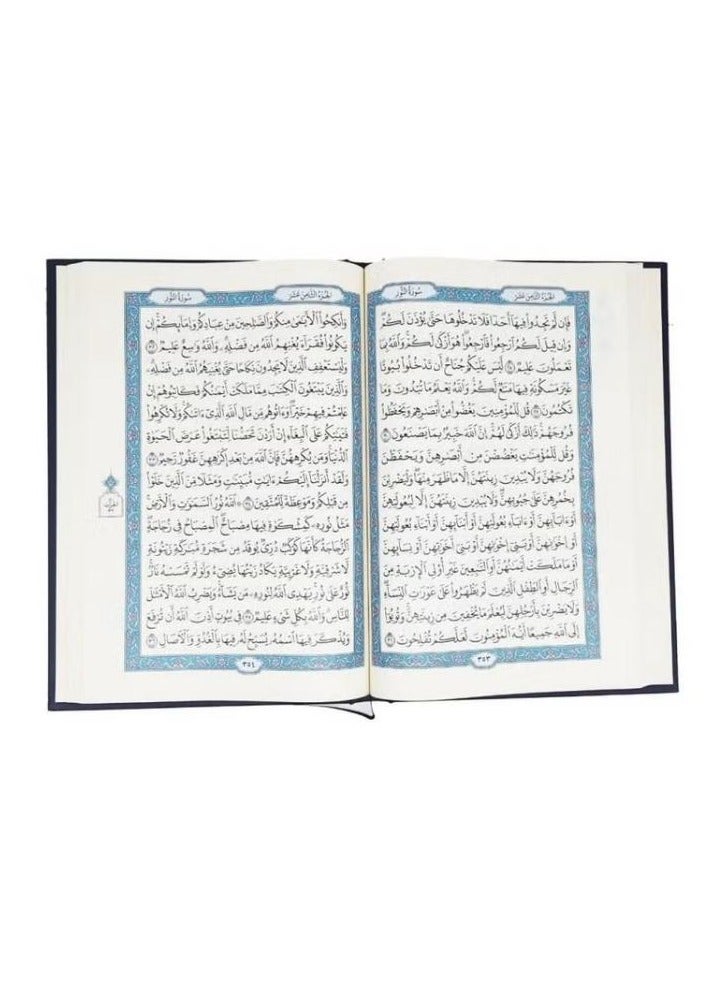 سُورَةُ النُّورِ الجُزْءُ الثَّامِنَ عَشَرَ
فَإِن لَّمْ تَجِدُوا۟ فِيهَآ أَحَدًا فَلَا تَدْخُلُوهَا حَتَّىٰ يُؤْذَنَ لَكُمْ
وَإِن قِيلَ لَكُمُ ٱرْجِعُوا۟ فَٱرْجِعُوا۟ هُوَ أَزْكَىٰ لَكُمْ وَٱللَّهُ بِمَا
تَعْمَلُونَ عَلِيمٌ ٢٨ لَّيْسَ عَلَيْكُمْ جُنَاحٌ أَن تَدْخُلُوا۟ بُيُوتًا
غَيْرَ مَسْكُونَةٍ فِيهَا مَتَٰعٌ لَّكُمْ وَٱللَّهُ يَعْلَمُ مَا تُبْدُونَ وَمَا
تَكْتُمُونَ ٢٩ قُل لِّلْمُؤْمِنِينَ يَغُضُّوا۟ مِنْ أَبْصَٰرِهِمْ وَيَحْفَظُوا۟
فُرُوجَهُمْ ذَٰلِكَ أَزْكَىٰ لَهُمْ إِنَّ ٱللَّهَ خَبِيرٌۢ بِمَا يَصْنَعُونَ ٣٠
وَقُل لِّلْمُؤْمِنَٰتِ يَغْضُضْنَ مِنْ أَبْصَٰرِهِنَّ وَيَحْفَظْنَ
فُرُوجَهُنَّ وَلَا يُبْدِينَ زِينَتَهُنَّ إِلَّا مَا ظَهَرَ مِنْهَا وَلْيَضْرِبْنَ
بِخُمُرِهِنَّ عَلَىٰ جُيُوبِهِنَّ وَلَا يُبْدِينَ زِينَتَهُنَّ إِلَّا لِبُعُولَتِهِنَّ
أَوْ ءَابَآئِهِنَّ أَوْ ءَابَآءِ بُعُولَتِهِنَّ أَوْ أَبْنَآئِهِنَّ أَوْ أَبْنَآءِ بُعُولَتِهِنَّ
أَوْ إِخْوَٰنِهِنَّ أَوْ بَنِىٓ إِخْوَٰنِهِنَّ أَوْ بَنِىٓ أَخَوَٰتِهِنَّ أَوْ نِسَآئِهِنَّ
أَوْ مَا مَلَكَتْ أَيْمَٰنُهُنَّ أَوِ ٱلتَّٰبِعِينَ غَيْرِ أُو۟لِى ٱلْإِرْبَةِ مِنَ
ٱلرِّجَالِ أَوِ ٱلطِّفْلِ ٱلَّذِينَ لَمْ يَظْهَرُوا۟ عَلَىٰ عَوْرَٰتِ ٱلنِّسَآءِ
وَلَا يَضْرِبْنَ بِأَرْجُلِهِنَّ لِيُعْلَمَ مَا يُخْفِينَ مِن زِينَتِهِنَّ وَتُوبُوٓا۟
إِلَى ٱللَّهِ جَمِيعًا أَيُّهَ ٱلْمُؤْمِنُونَ لَعَلَّكُمْ تُفْلِحُونَ ٣١
٣٥٣
الجُزْءُ الثَّامِنَ عَشَرَ سُورَةُ النُّورِ
وَأَنكِحُوا۟ ٱلْأَيَٰمَىٰ مِنكُمْ وَٱلصَّٰلِحِينَ مِنْ عِبَادِكُمْ وَإِمَآئِكُمْ إِن
يَكُونُوا۟ فُقَرَآءَ يُغْنِهِمُ ٱللَّهُ مِن فَضْلِهِۦ وَٱللَّهُ وَٰسِعٌ عَلِيمٌ ٣٢
وَلْيَسْتَعْفِفِ ٱلَّذِينَ لَا يَجِدُونَ نِكَاحًا حَتَّىٰ يُغْنِيَهُمُ ٱللَّهُ مِن فَضْلِهِۦ
وَٱلَّذِينَ يَبْتَغُونَ ٱلْكِتَٰبَ مِمَّا مَلَكَتْ أَيْمَٰنُكُمْ فَكَاتِبُوهُمْ إِنْ
عَلِمْتُمْ فِيهِمْ خَيْرًا وَءَاتُوهُم مِّن مَّالِ ٱللَّهِ ٱلَّذِىٓ ءَاتَىٰكُمْ وَلَا تُكْرِهُوا۟
فَتَيَٰتِكُمْ عَلَى ٱلْبِغَآءِ إِنْ أَرَدْنَ تَحَصُّنًا لِّتَبْتَغُوا۟ عَرَضَ ٱلْحَيَوٰةِ
ٱلدُّنْيَا وَمَن يُكْرِههُّنَّ فَإِنَّ ٱللَّهَ مِنۢ بَعْدِ إِكْرَٰهِهِنَّ غَفُورٌ رَّحِيمٌ ٣٣
وَلَقَدْ أَنزَلْنَآ إِلَيْكُمْ ءَايَٰتٍ مُّبَيِّنَٰتٍ وَمَثَلًا مِّنَ ٱلَّذِينَ خَلَوْا۟
مِن قَبْلِكُمْ وَمَوْعِظَةً لِّلْمُتَّقِينَ ٣٤ ٱللَّهُ نُورُ ٱلسَّمَٰوَٰتِ وَٱلْأَرْضِ
مَثَلُ نُورِهِۦ كَمِشْكَوٰةٍ فِيهَا مِصْبَاحٌ ٱلْمِصْبَاحُ فِى زُجَاجَةٍ
ٱلزُّجَاجَةُ كَأَنَّهَا كَوْكَبٌ دُرِّىٌّ يُوقَدُ مِن شَجَرَةٍ مُّبَٰرَكَةٍ زَيْتُونَةٍ
لَّا شَرْقِيَّةٍ وَلَا غَرْبِيَّةٍ يَكَادُ زَيْتُهَا يُضِىٓءُ وَلَوْ لَمْ تَمْسَسْهُ نَارٌ
نُّورٌ عَلَىٰ نُورٍ يَهْدِى ٱللَّهُ لِنُورِهِۦ مَن يَشَآءُ وَيَضْرِبُ ٱللَّهُ ٱلْأَمْثَٰلَ
لِلنَّاسِ وَٱللَّهُ بِكُلِّ شَىْءٍ عَلِيمٌ ٣٥ فِى بُيُوتٍ أَذِنَ ٱللَّهُ أَن تُرْفَعَ
وَيُذْكَرَ فِيهَا ٱسْمُهُۥ يُسَبِّحُ لَهُۥ فِيهَا بِٱلْغُدُوِّ وَٱلْءَاصَالِ ٣٦
٣٥٤